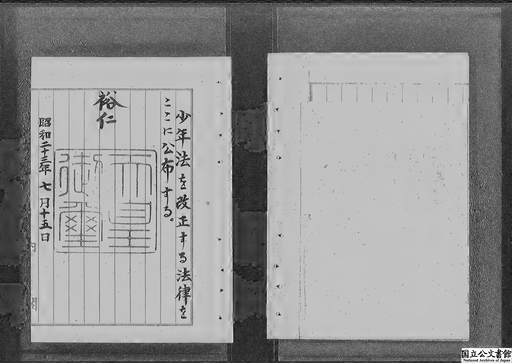 少年法を改正する法律を
ここに公布する。
裕仁
天皇
御璽
昭和二十三年七月十五日
国立公文書館
National Archives of Japan